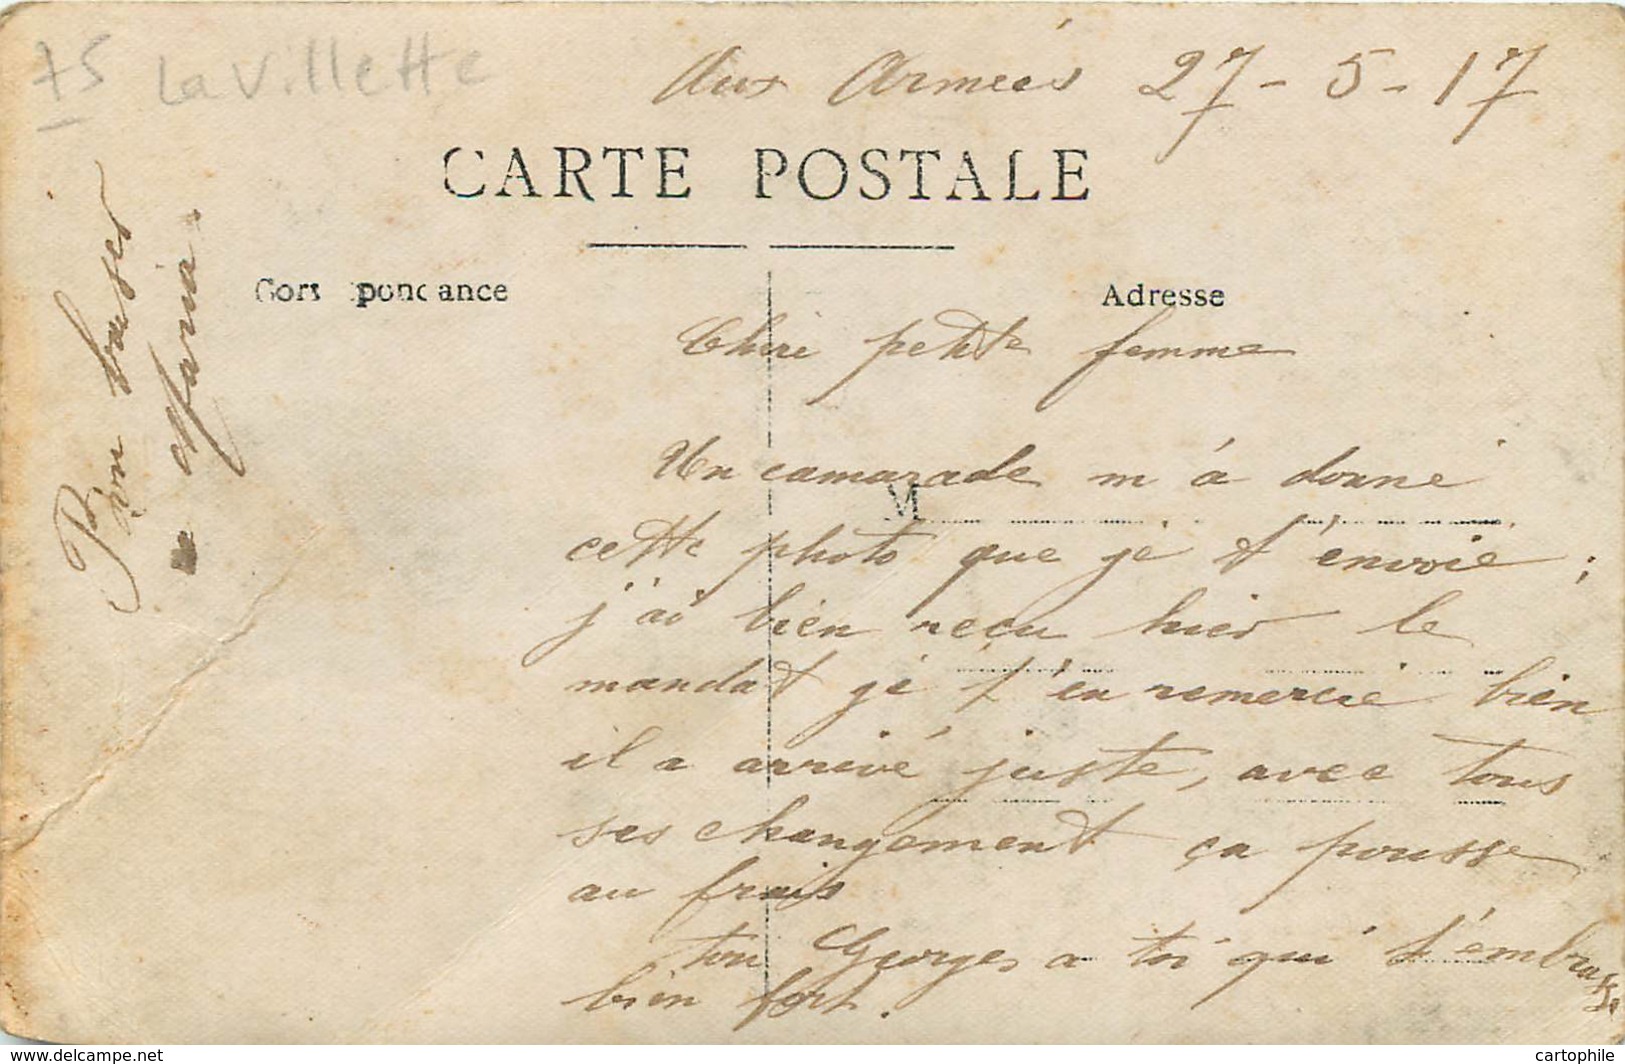 75 La Villette
Aux Armées 27-5-17
CARTE POSTALE
Correspondance
Adresse
Chere petite femme
Un camarade m'á donné
M
cette photo que je t'envoie ;
j'ai bien reçu hier le
mandat je t'en remercie bien
il a arrivé juste, avec tous
ses changement ça pousse
au frais
ton Georges a toi qui t'embrasse
bien fort.
Bon baiser
a Maria.
www.delcampe.net
cartophile